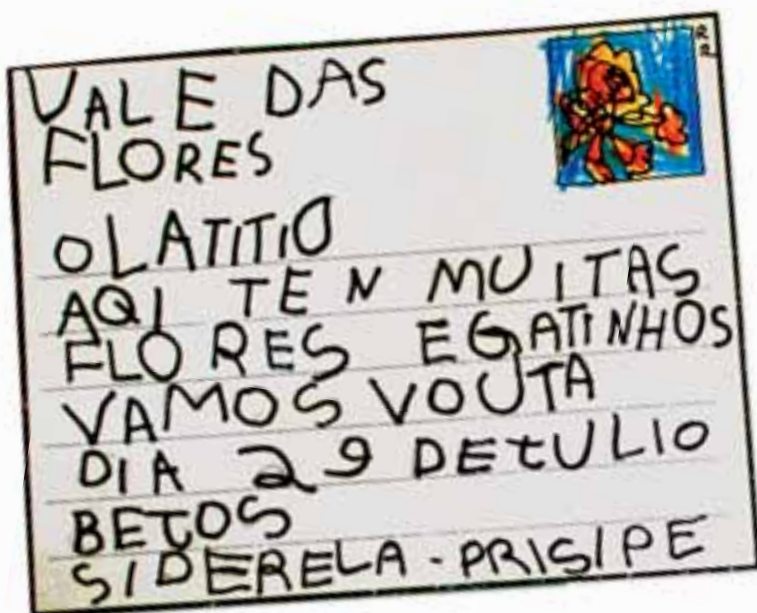 VALE DAS
FLORES
OLATITIO
AQI TEN MUITAS
FLORES EGATINHOS
VAMOS VOUTA
DIA 29 DETULIO
BETOS
SIDERELA - PRISIPE